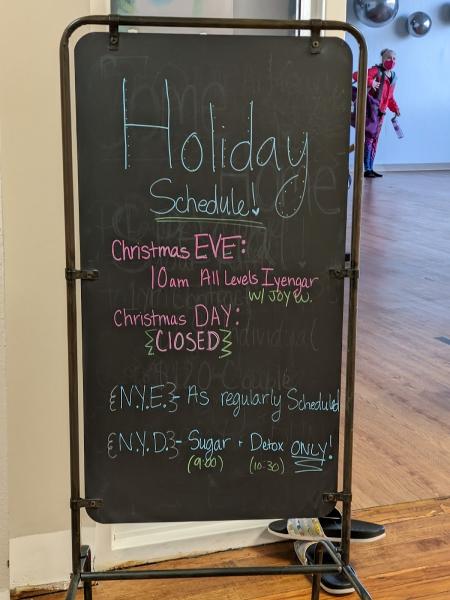 Holiday
Schedule!
Christmas EVE:
10am All Levels Iyengar
w/ JOY W.
Christmas DAY:
CLOSED
{N.Y.E.}- As regularly Scheduled
{N.Y.D.}- Sugar + Detox ONLY!
(9:00) (10:30)